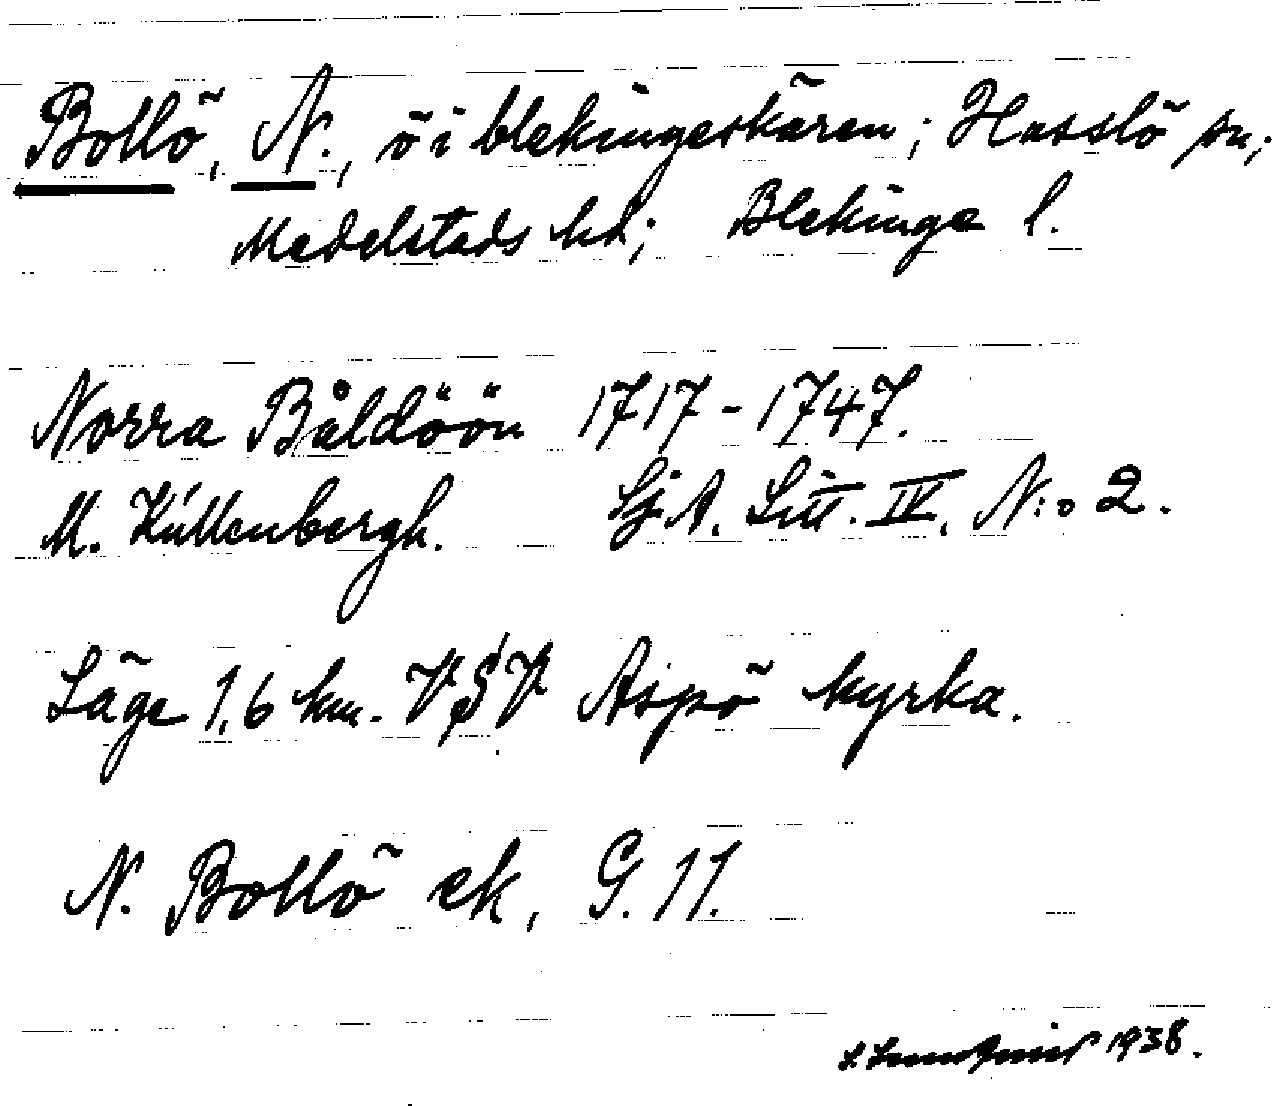 Bollö, N., ö i blekingeskären; Hasslö sn;
Medelstads hd; Blekinge l.
Norra Båldöön 1717-1747.
M. Küllenbergh. Sj. A. Litt. IV. N:o 2.
Läge 1,6 km. V§V Aspö kyrka.
N. Bollö ek, G. 11.
1938.